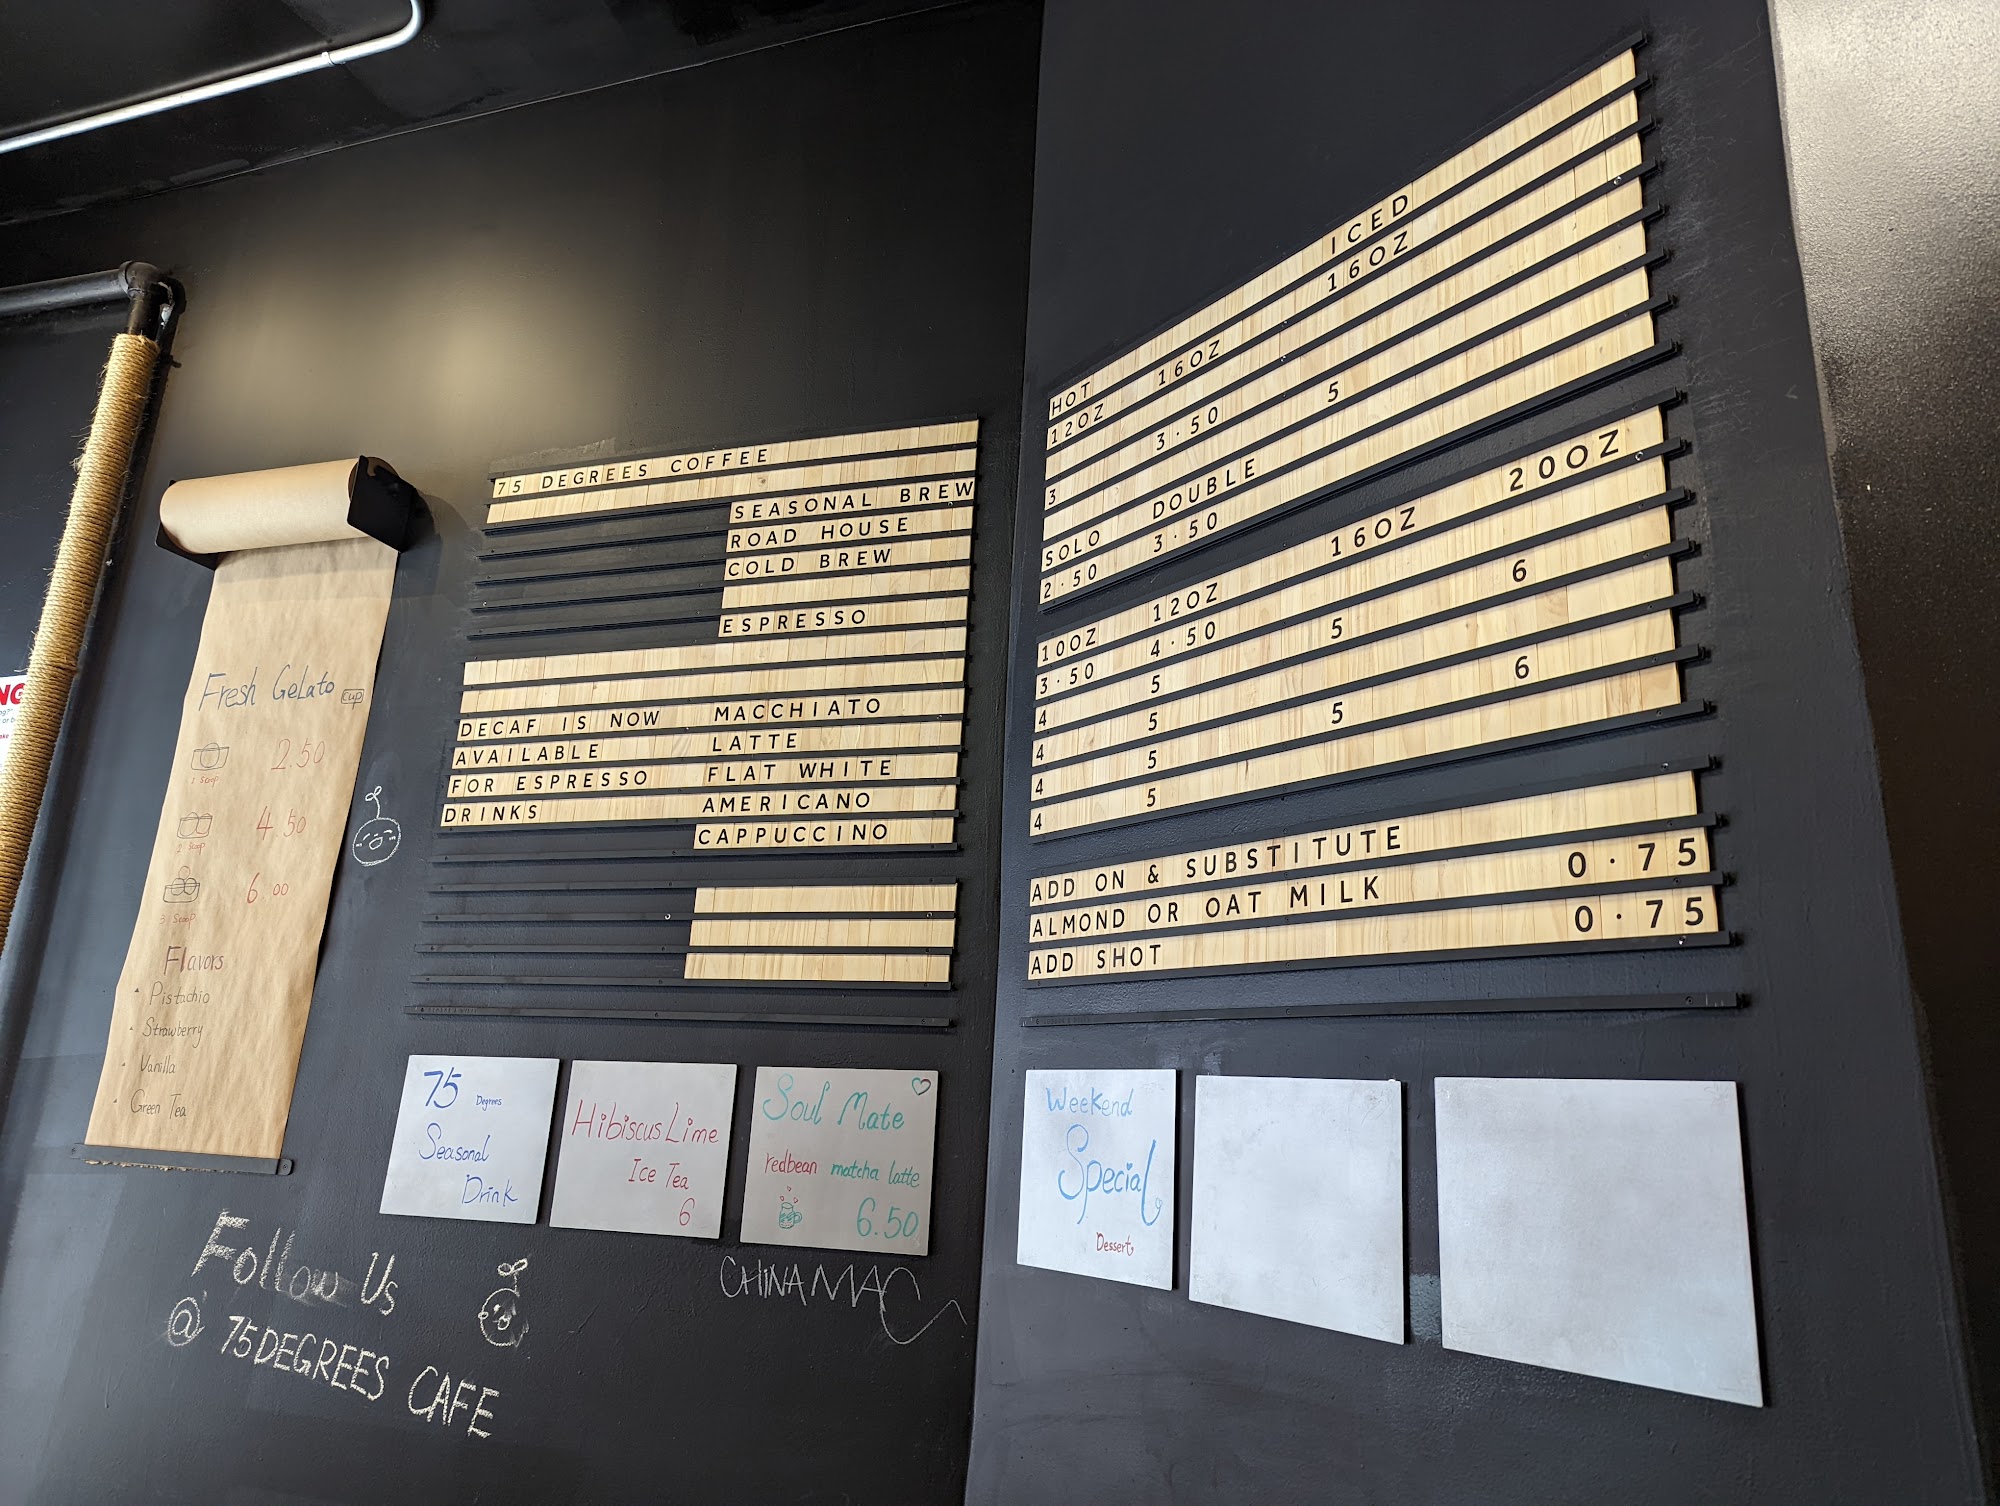 Fresh Gelato cup
1 Scoop 2.50
2 Scoop 4.50
3 Scoop 6.00
Flavors
Pistachio
Strawberry
Vanilla
Green Tea
Follow Us
@ 75DEGREES CAFE
75 DEGREES COFFEE
SEASONAL BREW
ROAD HOUSE
COLD BREW
ESPRESSO
DECAF IS NOW MACCHIATO
AVAILABLE LATTE
FOR ESPRESSO FLAT WHITE
DRINKS AMERICANO
CAPPUCCINO
75 Degrees
Seasonal
Drink
Hibiscus Lime
Ice Tea
6
Soul Mate
redbean matcha latte
6.50
CHINAMAC
HOT ICED
12OZ 16OZ 16OZ
3 3.50 5
SOLO DOUBLE
2.50 3.50
10OZ 12OZ 16OZ 20OZ
3.50 4.50
4 5 5 6
4 5
4 5 5 6
4 5
ADD ON & SUBSTITUTE
ALMOND OR OAT MILK 0.75
ADD SHOT 0.75
Weekend
Special
Dessert
NG